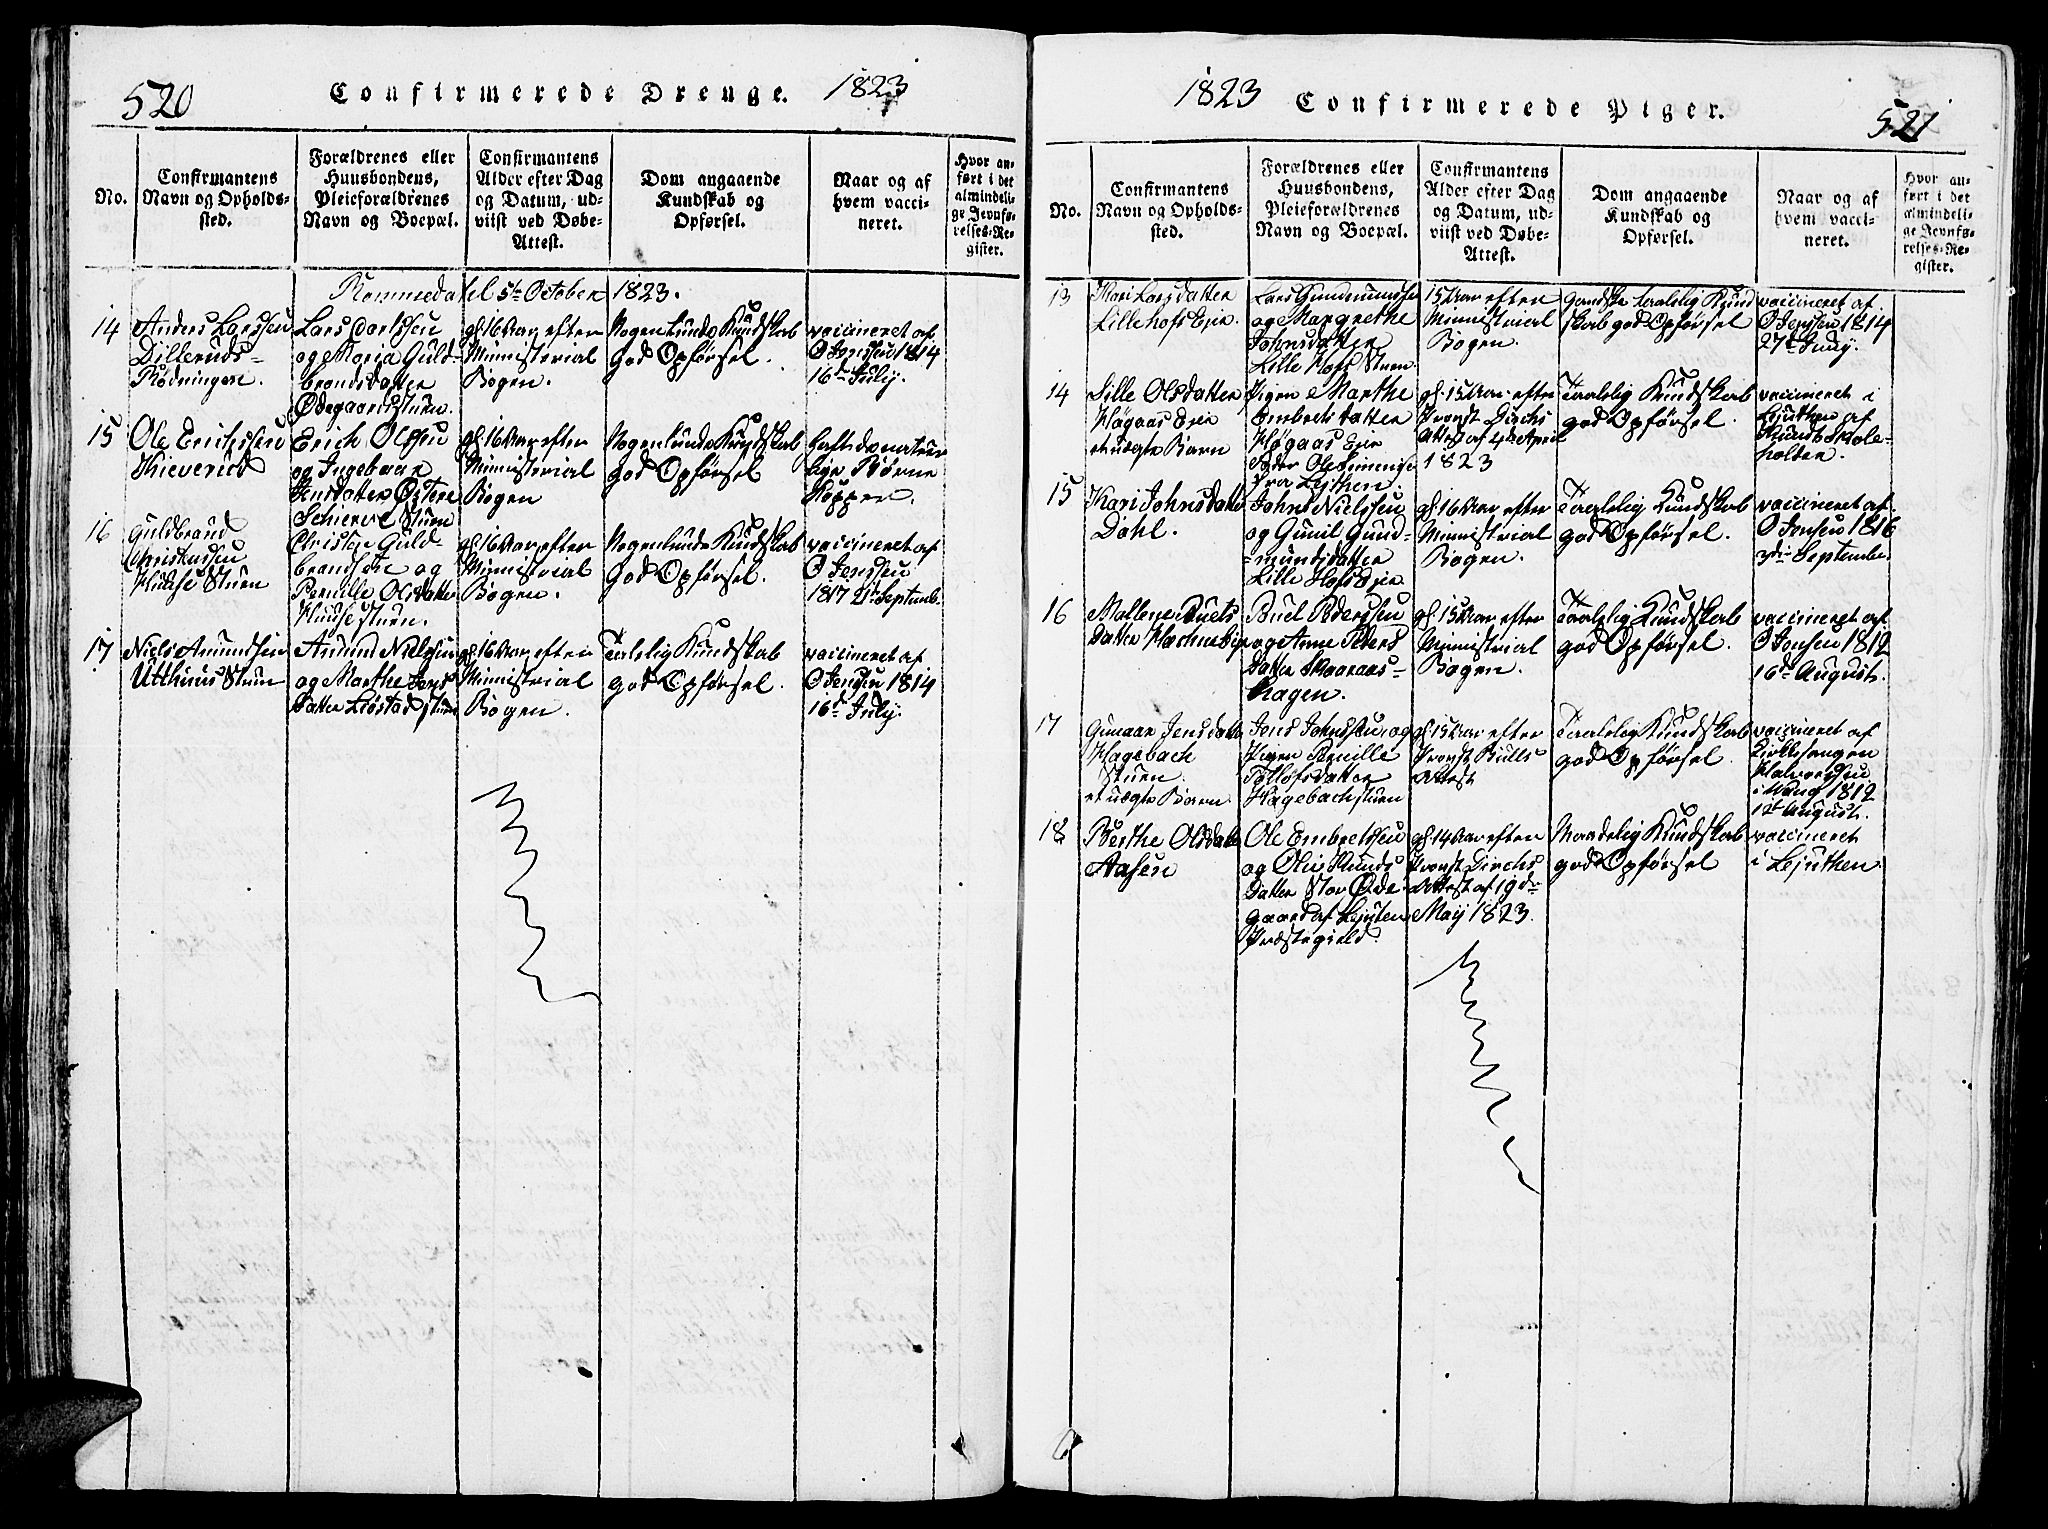 520
Confirmerede Drenge.
1823
No.
Confirmantens
Navn og Opholds-
sted.
Forældrenes eller
Huusbondens,
Pleieforældrenes
Navn og Boepæl.
Confirmantens
Alder efter Dag
og Datum, ud-
viist ved Døbe-
Attest.
Dom angaaende
Kundskab og
Opførsel.
Naar og af
hvem vacci-
neret.
Hvor an-
ført i det
almindeli-
ge Jevnfø-
relses-Re-
gister.
Rommedahl 5te October 1823.
14
Anders Larssen
Dilleruds-
Rødningen.
Lars Carlssen
og Maria Guld-
brandsdatter
Ødegaardsstuen.
gl. 16 Aar efter
Ministerial
Bogen.
Nogenlunde Kundskab
God Opførsel.
vaccineret af
O Jenssen 1814
16de July.
15
Ole Erichssen
Kieverud
Erich Olssen
og Ingeborg
Jensdatter Østre
Schierve Stuen
gl. 16 Aar efter
Ministerial
Bogen
Nogenlunde Kundskab
god Opførsel
haft de naturlige
Børne
Kopper.
16
Guldbrand
Christenssen
Huuse Stuen
Christen Guld-
brandsen og
Pernille Olsdatter
Huusestuen.
gl. 16 Aar efter
Ministerial
Bogen.
Nogenlunde Kundskab
God Opførsel.
vaccineret af
O Jenssen
1817 21de Septemb.
17
Niels Amundsen
Utthuus Stuen
Amund Nielsen
og Marthe Jens
Datter Løstad stuen
gl. 16 Aar efter
Ministerial
Bogen.
Taalelig Kundskab
god Opførsel.
vaccineret af
O Jensen 1814
16de July.
1823
Confirmerede Piger.
521
No.
Confirmantens
Navn og Opholds-
sted.
Forældrenes eller
Huusbondens,
Pleieforældrenes
Navn og Boepæl.
Confirmantens
Alder efter Dag
og Datum, ud-
viist ved Døbe-
Attest.
Dom angaaende
Kundskab og
Opførsel.
Naar og af
hvem vacci-
neret.
Hvor an-
ført i det
almindeli-
ge Jevnfø-
relses-Re-
gister.
13
Mari Larsdatter
Lillehofs Eje.
Lars Gundmundsen
og Margrethe
Johnsdatter
Lille Hofs Stuen.
15 Aar efter
Ministerial
Bogen.
Gandske taalelig Kund
skab god Opførsel
vaccineret af
O Jenssen 1814
27de Juny.
14
Sille Olsdatter
Høgaas Eje
et uægte Barn
Pigen Marthe
Embrets datter
Høgaas Eje
Fader Ole
fra Løjthen.
gl. 15 Aar efter
Provst Dircks
Attest af 4de April
1823
Taalelig Kundskab
god Opførsel.
vaccineret i
Løjthen af
Skole-
holder.
15
Kari Johnsdatter
Dahl.
John Nielssen
og Gunil Gund-
mundsdatter
Lille Hofs Eje
gl. 16 Aar efter
Ministerial
Bogen.
Taalelig Kundskab
god Opførsel.
vaccineret af
O Jensen 1816
3die Septembe.
16
Mallene Buels
Datter
Buel Pedersen
og Anne Peders
Datter Skaaraas-
hagen.
gl. 15 Aar efter
Ministerial
Bogen.
Taalelig Kundskab
god Opførsel.
vaccineret af
O Jonsen 1812
16de August.
17
Gunnar Jensdatter
Hagebach
Stuen.
et uægte Barn
Jens Johnssen, og
Pigen Pernille
Tollofsdatter
Hagebachstuen
gl. 15 Aar efter
Provst Bulls
Attest
Taalelig Kundskab
god Opførsel.
vaccineret af
Kirkesangen
Halvorssen
i Wang 1812
12te August.
18
Berthe Olsdatter
Aasen
Ole Embretssen
og Olia Knuds
Datter Stor Øde-
gaard af Løjten
Præstegield.
gl. 14 Aar efter
Provst Dircks
Attest af 19de
Maij 1823.
Maadelig Kundskab
god Opførsel
vaccineret
i Løjthen.